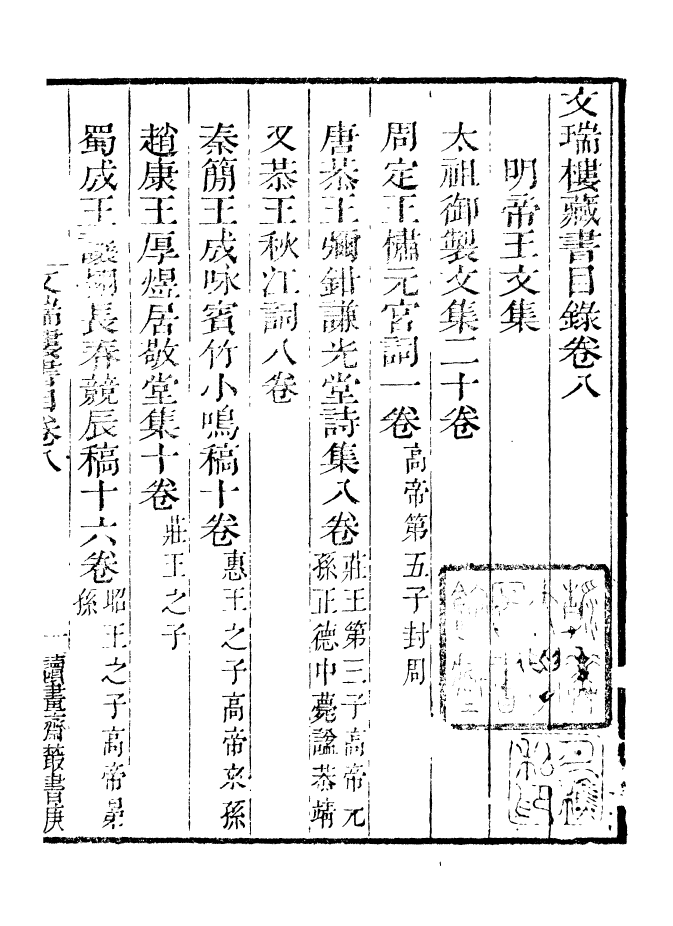 文瑞樓藏書目錄卷八
明帝王文集
太祖御製文集二十卷
周定王橚元宮詞一卷高帝第五子封周
唐恭王彌鉗謙光堂詩集八卷莊王第三子高帝元孫正德中薨諡恭靖
又恭王秋江詞八卷
秦簡王成咏賓竹小鳴稿十卷惠王之子高帝來孫
趙康王厚煜居敬堂集十卷莊王之子
蜀成王讓栩長春競辰稿十六卷昭王之子高帝晜孫
文瑞樓書目卷八
一
讀畫齋叢書庚